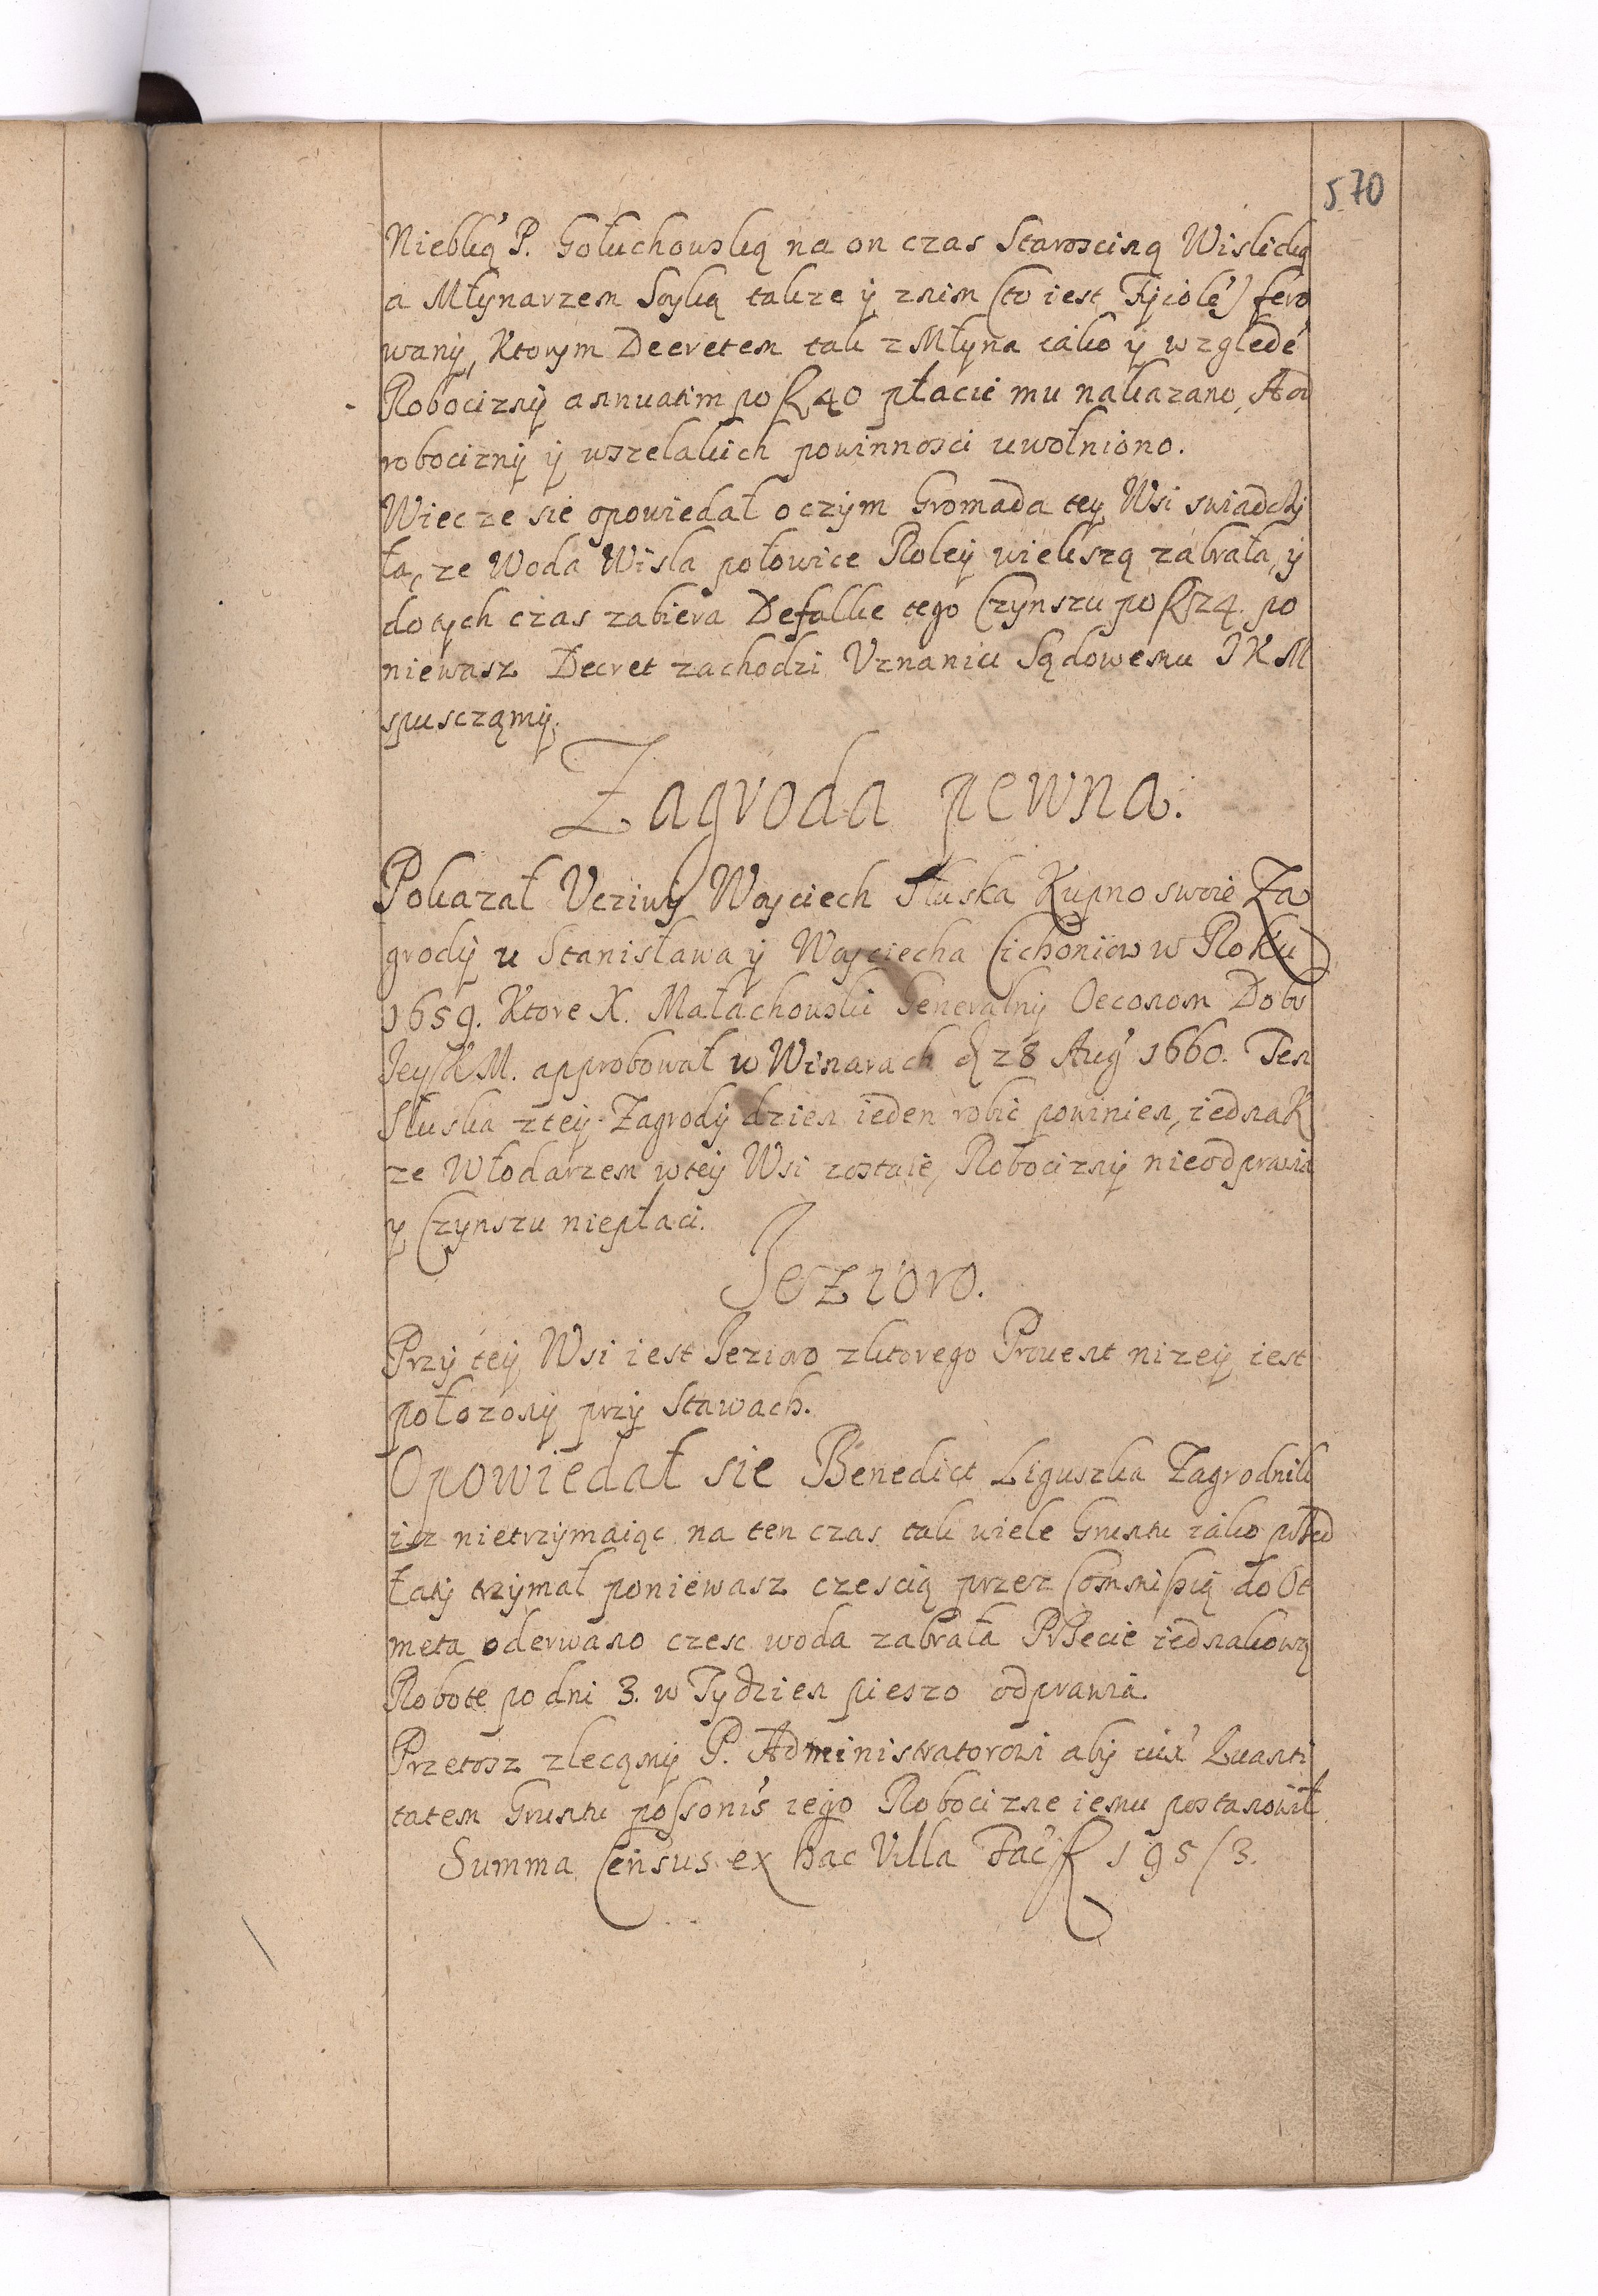 570
Niebſką P. Gołuchowską na on czas Starościną Wislicką
a Młynarzem Soyką takze ÿ znim (to iest Tyiolé) fero
wanÿ, Ktorym Decretem tak z Młyna iako ÿ wzglede
Robociznÿ annuatim po f 40 płacic mu nakazano, A od
robociznÿ ÿ wszelakich powinnosci uwolniono.
Wiec ze sie opowiedał o czÿm Gromada teÿ Wsi swiadczÿ
ła, ze Woda Wisla połowice Roleÿ wiekszą zabrała, ÿ
dotych czas zabiera Defalke tego Czynszu po f 24. po
niewasz Decret zachodzi Uznaniu Sądowemu J K M
spusczamÿ.
Zagroda pewna.
Pokazał Ucziwÿ Woyciech Słuska Kupno swoie Za
grodÿ u Stanisława ÿ Woyciecha Cichoniow w Roku
1659. Ktore X. Małachowski Generalnÿ Oeconom Dobr
Jey K M. approbował w Winarach d 28 Aug 1660. Ten
Słuska z teÿ Zagrodÿ dzien ieden robic powinien, iednak
ze Włodarzem w teÿ Wsi zostaie, Robociznÿ nieodprawia
y Czynszu niepłaci.
Jezioro.
Przÿ teÿ Wsi iest Jezioro z ktorego Provent nizeÿ iest
połozonÿ przÿ Stawach.
Opowiedał sie Benedict Liguszka Zagrodnik
isz nietrzÿmaiąc na ten czas tak wiele Gruntu iako przed
łatÿ trzÿmał poniewasz czescią przez Commissią do Ot
meta oderwano czesc woda zabrała Przecie iednakową
Robote po dni 3. w Tydzien pieszo odprawia.
Przetosz zlecamÿ P. Administratorowi abÿ iux Quanti
tatem Gruntu possonis iego Robocizne iemu postanowił
Summa Census ex hac Villa Fac f 195/3.